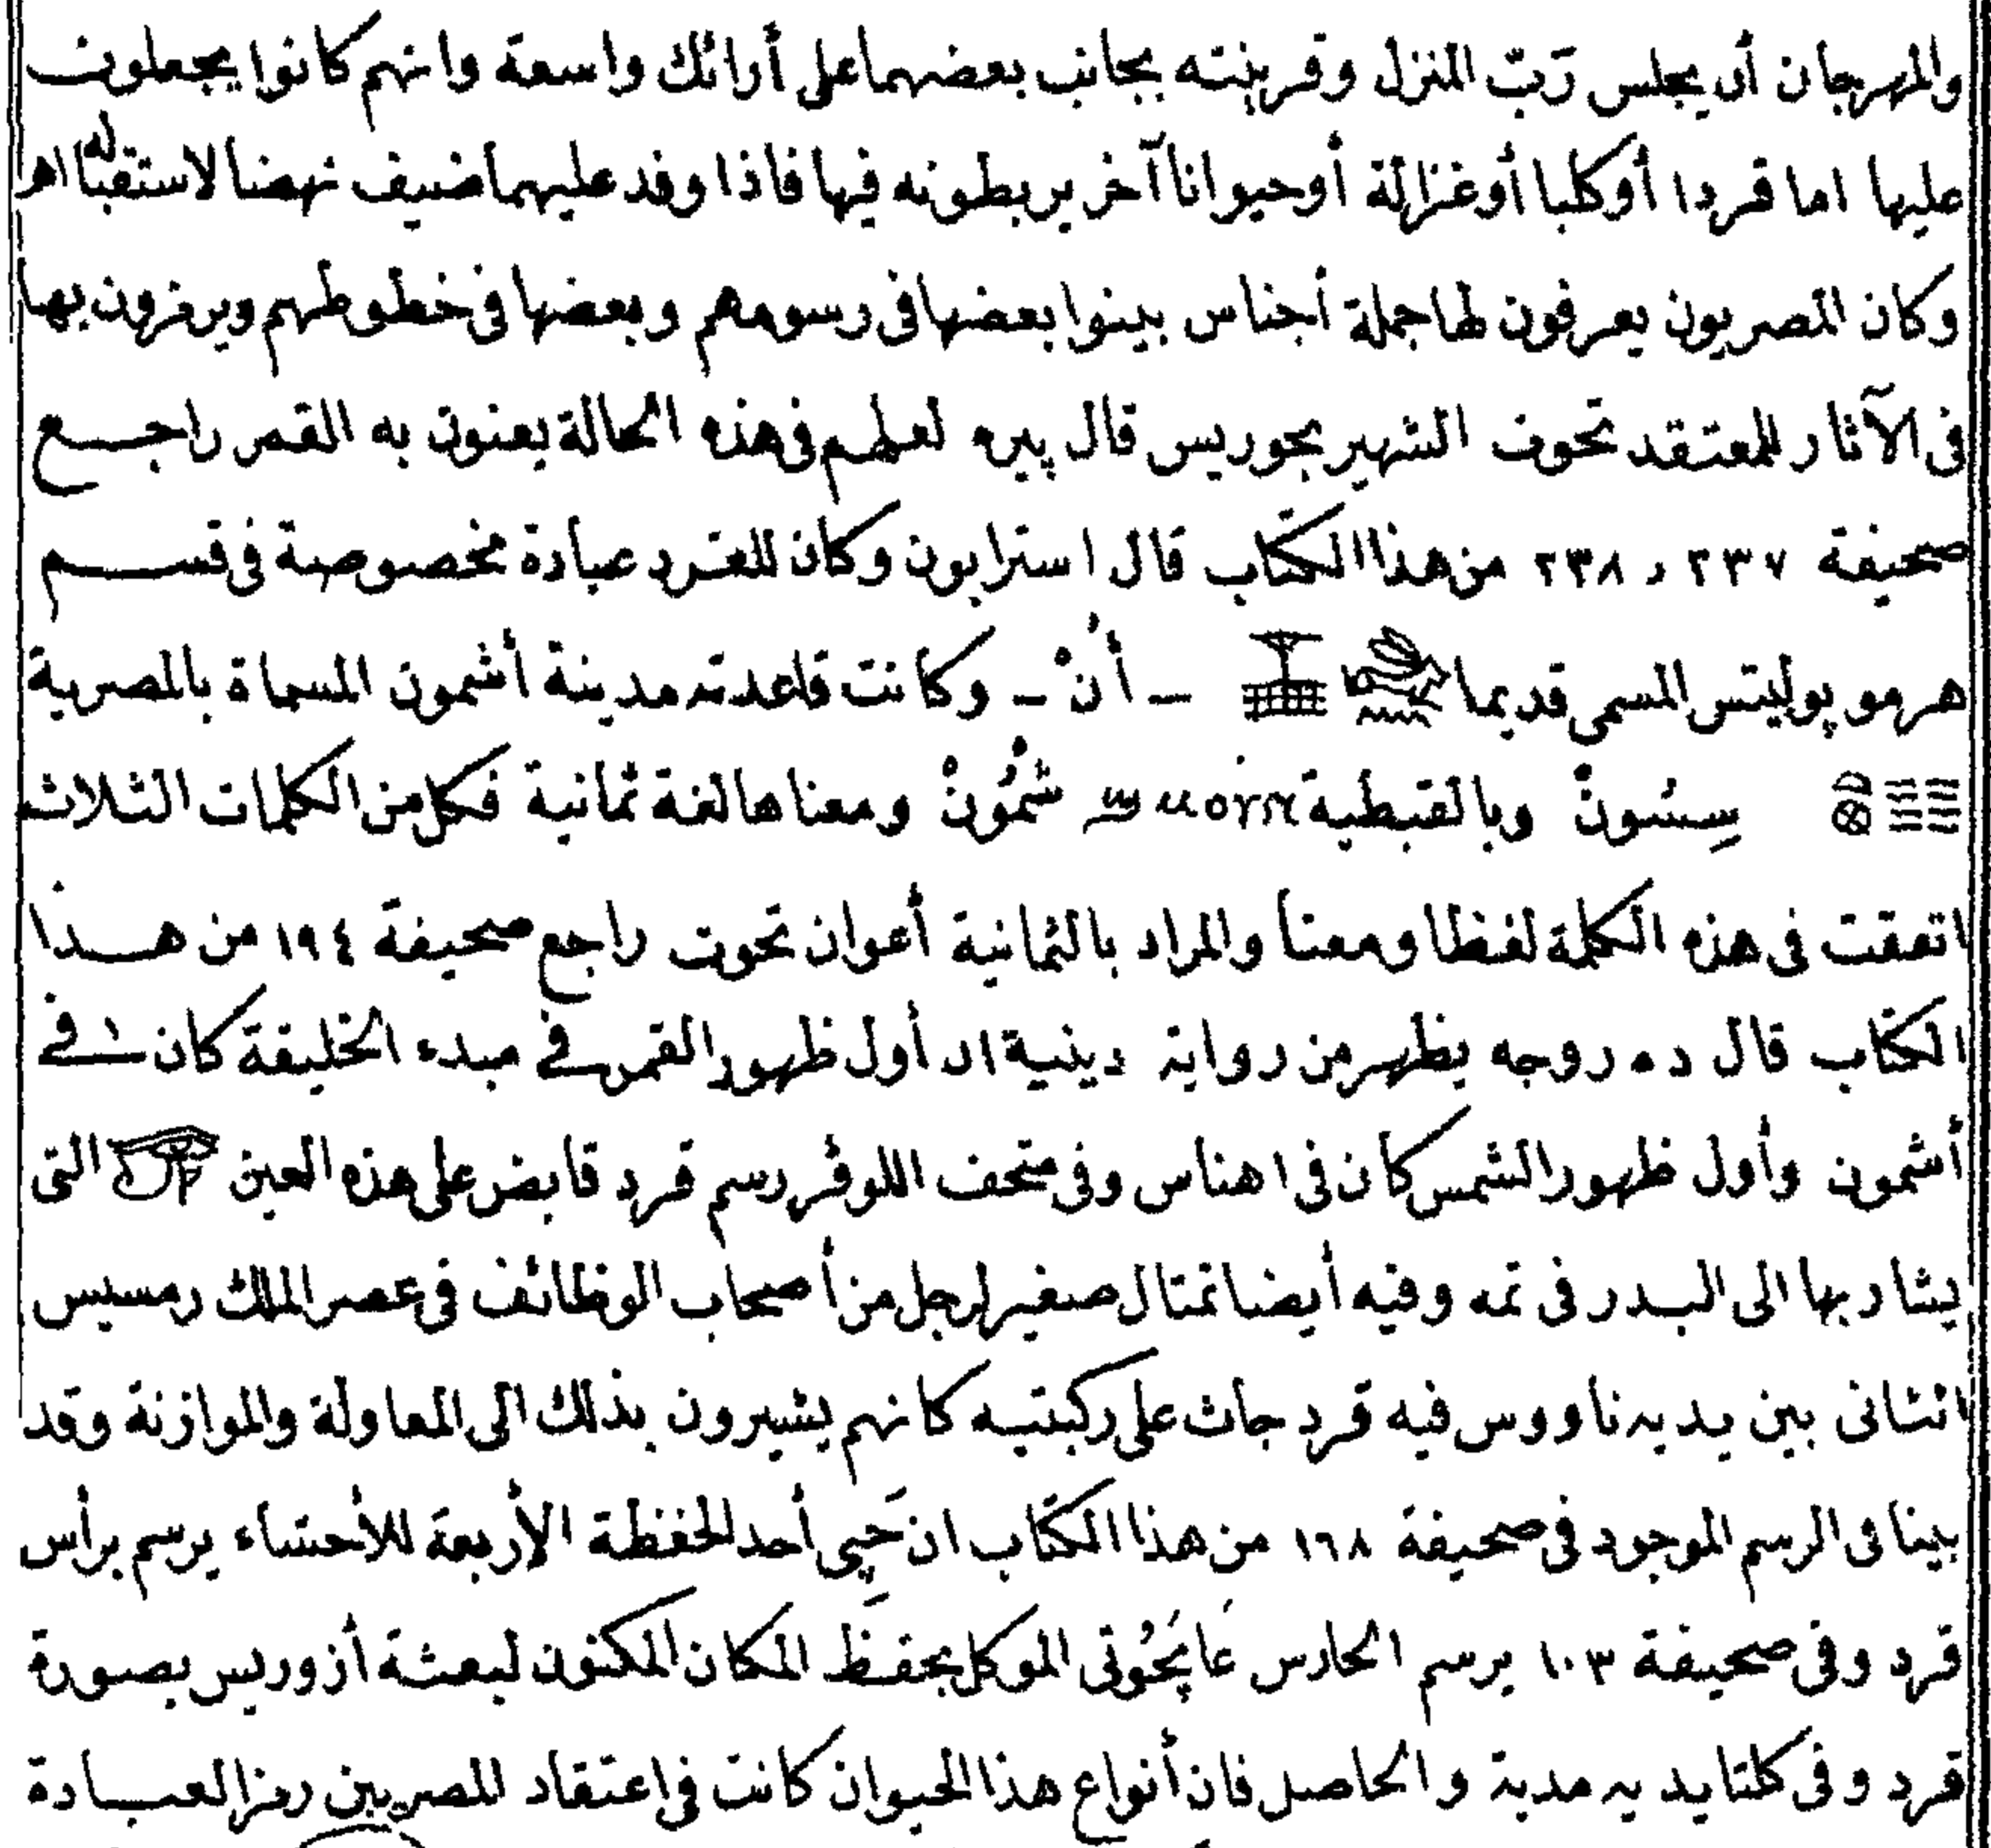 والمهرجان أن يجلس رَبّ المنزل وقرينته بجانب بعضهما على أرائك واسعة وانهم كانوا يجعلون
عليها اما قردا أو كلبا أو غزالة أو حيوانا آخر يربطونه فيها فاذا وفد عليهما ضيف نهضا لاستقباله اهـ
وكان المصريون يعرفون لها جملة أجناس بينوا بعضها فى رسومهم وبعضها فى خطوطهم ويرمزون بها
فى الآثار للمعتقد تحوت الشهير بجوريس قال پيره لعلهم فى هذه الحالة يعنون به القمر راجع
صحيفة ٢٣٧ و ٢٣٨ من هذا الكتاب قال استرابون وكان للقرد عبادة مخصوصة فى قسم
هرموپوليتس المسمى قديما ـ أُنْ ـ وكانت قاعدته مدينة أشمون المسماة بالمصرية
سِسُونْ وبالقبطية ϣⲙⲟⲩⲛ شْمُونْ ومعناها لغة ثمانية فكل من الكلمات الثلاث
اتفقت فى هذه الكلمة لفظا ومعنا والمراد بالثمانية أعوان تحوت راجع صحيفة ١٩٤ من هذا
الكتاب قال ده روجه يظهر من رواية دينية ان أول ظهور القمر فى مبدء الخليقة كان فى
أشمون وأول ظهور الشمس كان فى اهناس وفى متحف اللوڤر رسم قرد قابض على هذه العين التى
يشار بها الى البدر فى تمه وفيه أيضا تمثال صغير لرجل من أصحاب الوظائف فى عصر الملك رمسيس
الثانى بين يديه ناووس فيه قرد جاث على ركبتيه كانهم يشيرون بذلك الى المعاولة والموازنة وقد
بينا فى الرسم الموجود فى صحيفة ١٦٨ من هذا الكتاب ان حَپِى أحد الحفظة الأربعة للأحشاء يرسم برأس
قرد وفى صحيفة ١٠٣ يرسم الحارس الموكل بحفظ المكان المكنون لبعثة أزوريس بصورة
قرد وفى كلتا يديه مدية والحاصل فان أنواع هذا الحيوان كانت فى اعتقاد المصريين رمز العبادة